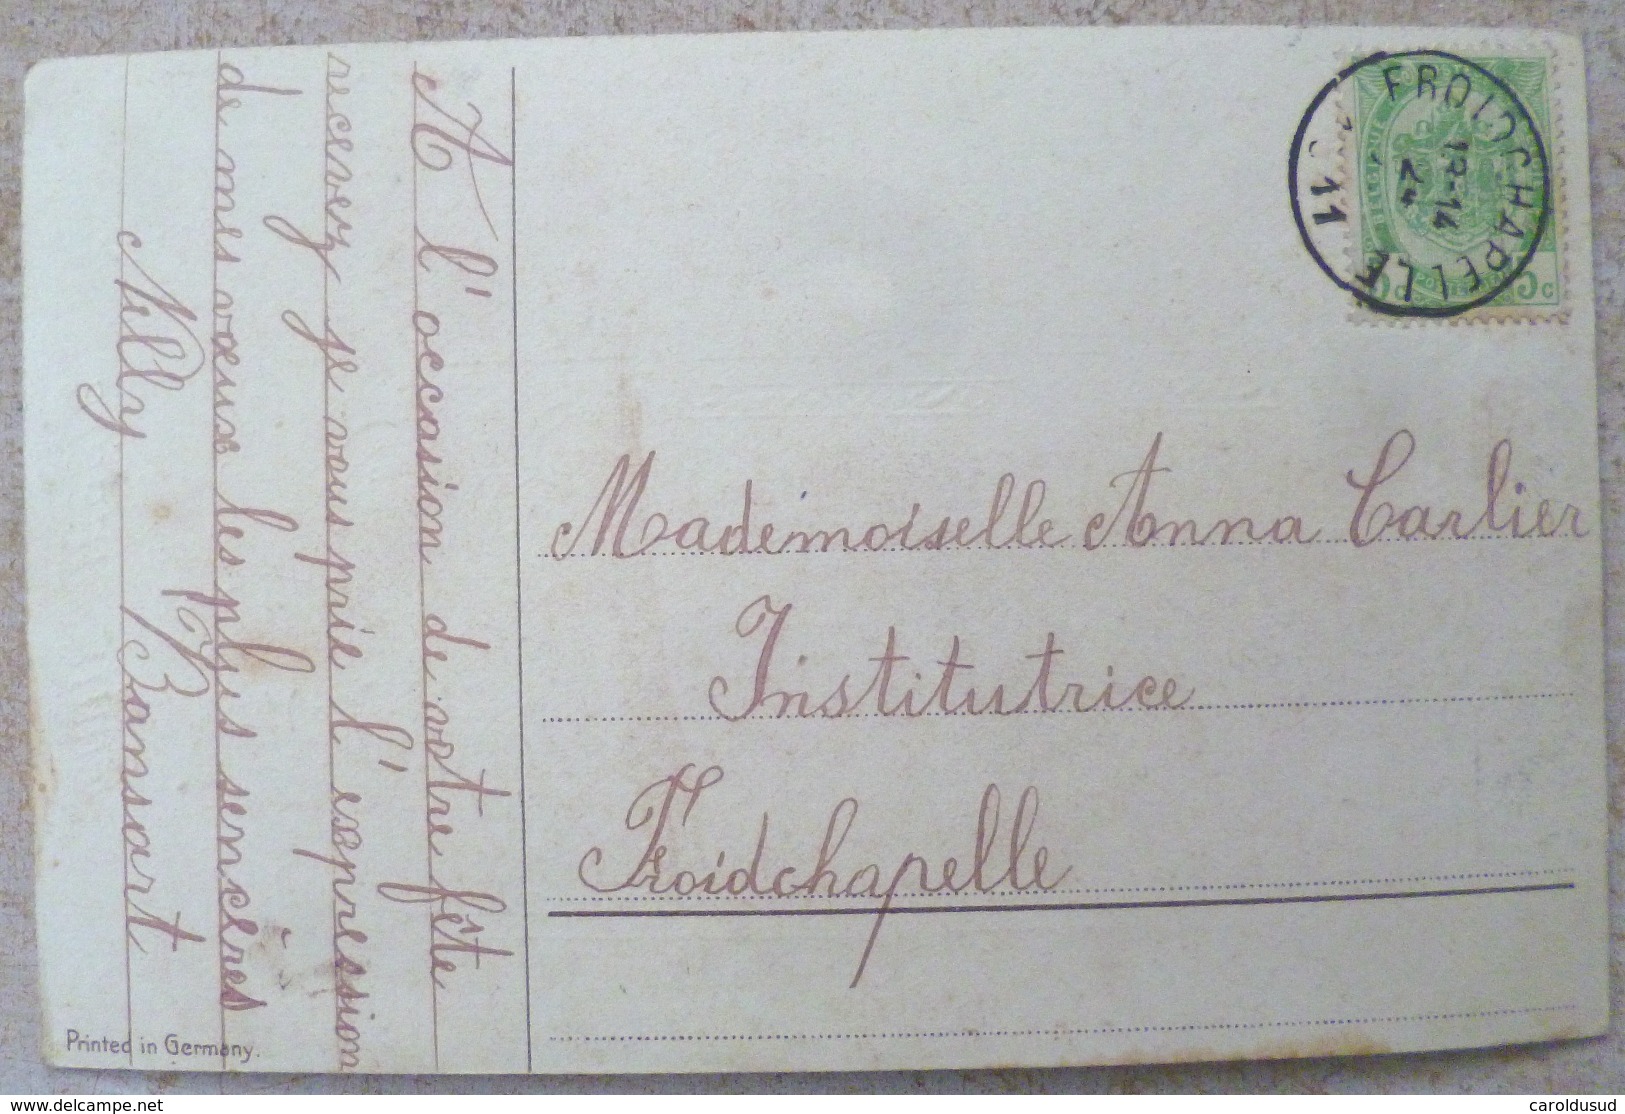 A l'occasion de votre fête
recevez je vous prie l'expression
de mes vœux les plus sencères
Nelly Bansart
Mademoiselle Anna Carlier
Institutrice
Froidchapelle
FROIDCHAPELLE
11
BELGIQUE
5c
Printed in Germany.
delcampe.net
caroldusud